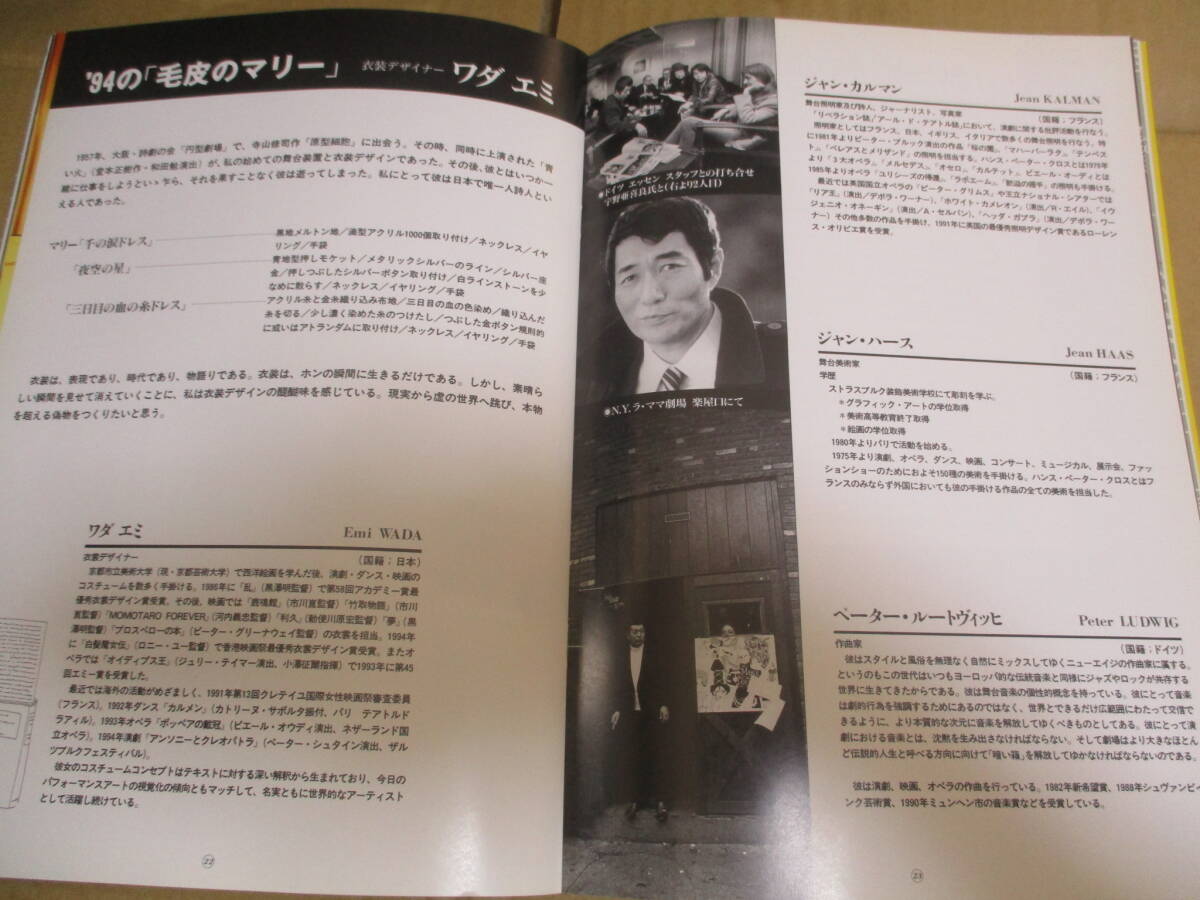 '94の「毛皮のマリー」 衣装デザイナー ワダ エミ
1957年、大阪・詩劇の会「円型劇場」で、寺山修司作「原型細胞」に出会う。その時、同時に上演された「青
い火」（堂本正樹作・和田勉演出）が、私の始めての舞台装置と衣装デザインであった。その後、彼とはいつか一
緒に仕事をしようといゝ乍ら、それを果すことなく彼は逝ってしまった。私にとって彼は日本で唯一人詩人とい
える人であった。
マリー「千の涙ドレス」
黒地メルトン地／滴型アクリル1000個取り付け／ネックレス／イヤ
リング／手袋
「夜空の星」
青地型押しモケット／メタリックシルバーのライン／シルバー座
金／押しつぶしたシルバーボタン取り付け／白ラインストーンを少
なめに散らす／ネックレス／イヤリング／手袋
「三日目の血の糸ドレス」
アクリル糸と金糸織り込み布地／三日目の血の色染め／織り込んだ
糸を切る／少し濃く染めた糸のつけたし／つぶした金ボタン規則的
に或いはアトランダムに取り付け／ネックレス／イヤリング／手袋
衣装は、表現であり、時代であり、物語りである。衣装は、ホンの瞬間に生きるだけである。しかし、素晴ら
しい瞬間を見せて消えていくことに、私は衣装デザインの醍醐味を感じている。現実から虚の世界へ跳び、本物
を超える偽物をつくりたいと思う。
ワダ エミ Emi WADA
衣裳デザイナー （国籍；日本）
京都市立美術大学（現・京都芸術大学）で西洋絵画を学んだ後、演劇・ダンス・映画の
コスチュームを数多く手掛ける。1986年に「乱」（黒澤明監督）で第58回アカデミー賞最
優秀衣裳デザイン賞受賞。その後、映画では「鹿鳴館」（市川崑監督）「竹取物語」（市川
崑監督）「MOMOTARO FOREVER」（河内義忠監督）「利久」（勅使川原宏監督）「夢」（黒
澤明監督）「プロスペローの本」（ピーター・グリーナウェイ監督）の衣裳を担当。1994年
に「白髪魔女伝」（ロニー・ユー監督）で香港映画祭最優秀衣裳デザイン賞受賞。またオ
ペラでは「オイディプス王」（ジュリー・テイマー演出、小澤征爾指揮）で1993年に第45
回エミー賞を受賞した。
最近では海外の活動がめざましく、1991年第13回クレテイユ国際女性映画祭審査委員
（フランス）。1992年ダンス「カルメン」（カトリーヌ・サボルタ振付、パリ テアトルド
ラアィル）。1993年オペラ「ポッペアの戴冠」（ピエール・オウディ演出、ネザーランド国
立オペラ）。1994年演劇「アンソニーとクレオパトラ」（ペーター・シュタイン演出、ザル
ツブルクフェスティバル）。
彼女のコスチュームコンセプトはテキストに対する深い解釈から生まれており、今日の
パフォーマンスアートの視覚化の傾向ともマッチして、名実ともに世界的なアーティスト
として活躍し続けている。
22
●ドイツ エッセン スタッフとの打ち合せ
宇野亜喜良氏と（右より2人目）
●N.Y.ラ・ママ劇場 楽屋口にて
ジャン・カルマン Jean KALMAN
舞台照明家及び詩人、ジャーナリスト、写真家 （国籍；フランス）
「リベラション誌／アール・ド・テアトル誌」において、演劇に関する批評活動を行なう。
照明家としてはフランス、日本、イギリス、イタリアで数多くの舞台照明を行なう。特
に1981年よりピーター・ブルック演出の作品「桜の園」、「マハーバーラタ」、「テンペス
ト」、「ペレアスとメリザンド」の照明を担当する。ハンス・ペーター・クロスとは1975年
より「3大オペラ」、「メルセデス」、「オセロ」、「カルテット」、ピエール・オーディとは
1985年よりオペラ「ユリシーズの帰還」、「ラボエーム」、「歓迎の握手」の照明も手掛ける。
最近では英国国立オペラの「ピーター・グリムス」や王立ナショナル・シアターでは
「リア王」（演出／デボラ・ワーナー）、「ホワイト・カメレオン」（演出／R・エイル）、「イヴ
ジェニオ・オネーギン」（演出／A・セルバン）、「ヘッダ・ガブラ」（演出／デボラ・ワー
ナー）その他多数の作品を手掛け、1991年に英国の最優秀照明デザイン賞であるローレン
ス・オリビエ賞を受賞。
ジャン・ハース Jean HAAS
舞台美術家 （国籍；フランス）
学歴
ストラスブルク装飾美術学校にて彫刻を学ぶ。
＊グラフィック・アートの学位取得
＊美術高等教育終了取得
＊絵画の学位取得
1980年よりパリで活動を始める。
1975年より演劇、オペラ、ダンス、映画、コンサート、ミュージカル、展示会、ファッ
ションショーのためにおよそ150種の美術を手掛ける。ハンス・ペーター・クロスとはフ
ランスのみならず外国においても彼の手掛ける作品の全ての美術を担当した。
ペーター・ルートヴィッヒ Peter LUDWIG
作曲家 （国籍；ドイツ）
彼はスタイルと風俗を無理なく自然にミックスしてゆくニューエイジの作曲家に属する。
というのもこの世代はいつもヨーロッパ的な伝統音楽と同様にジャズやロックが共存する
世界に生きてきたからである。彼は舞台音楽の個性的概念を持っている。彼にとって音楽
は劇的行為を強調するためにあるのではなく、世界とできるだけ広範囲にわたって交信で
きるように、より本質的な次元に音楽を解放してゆくべきものとしてある。彼にとって演
劇における音楽とは、沈黙を生み出さなければならない。そして劇場はより大きなほとん
ど伝説的人生と呼べる方向に向けて「暗い箱」を解放してゆかなければならないのである。
彼は演劇、映画、オペラの作曲を行っている。1982年新希望賞、1988年シュヴァンビ
ンク芸術賞、1990年ミュンヘン市の音楽賞などを受賞している。
23